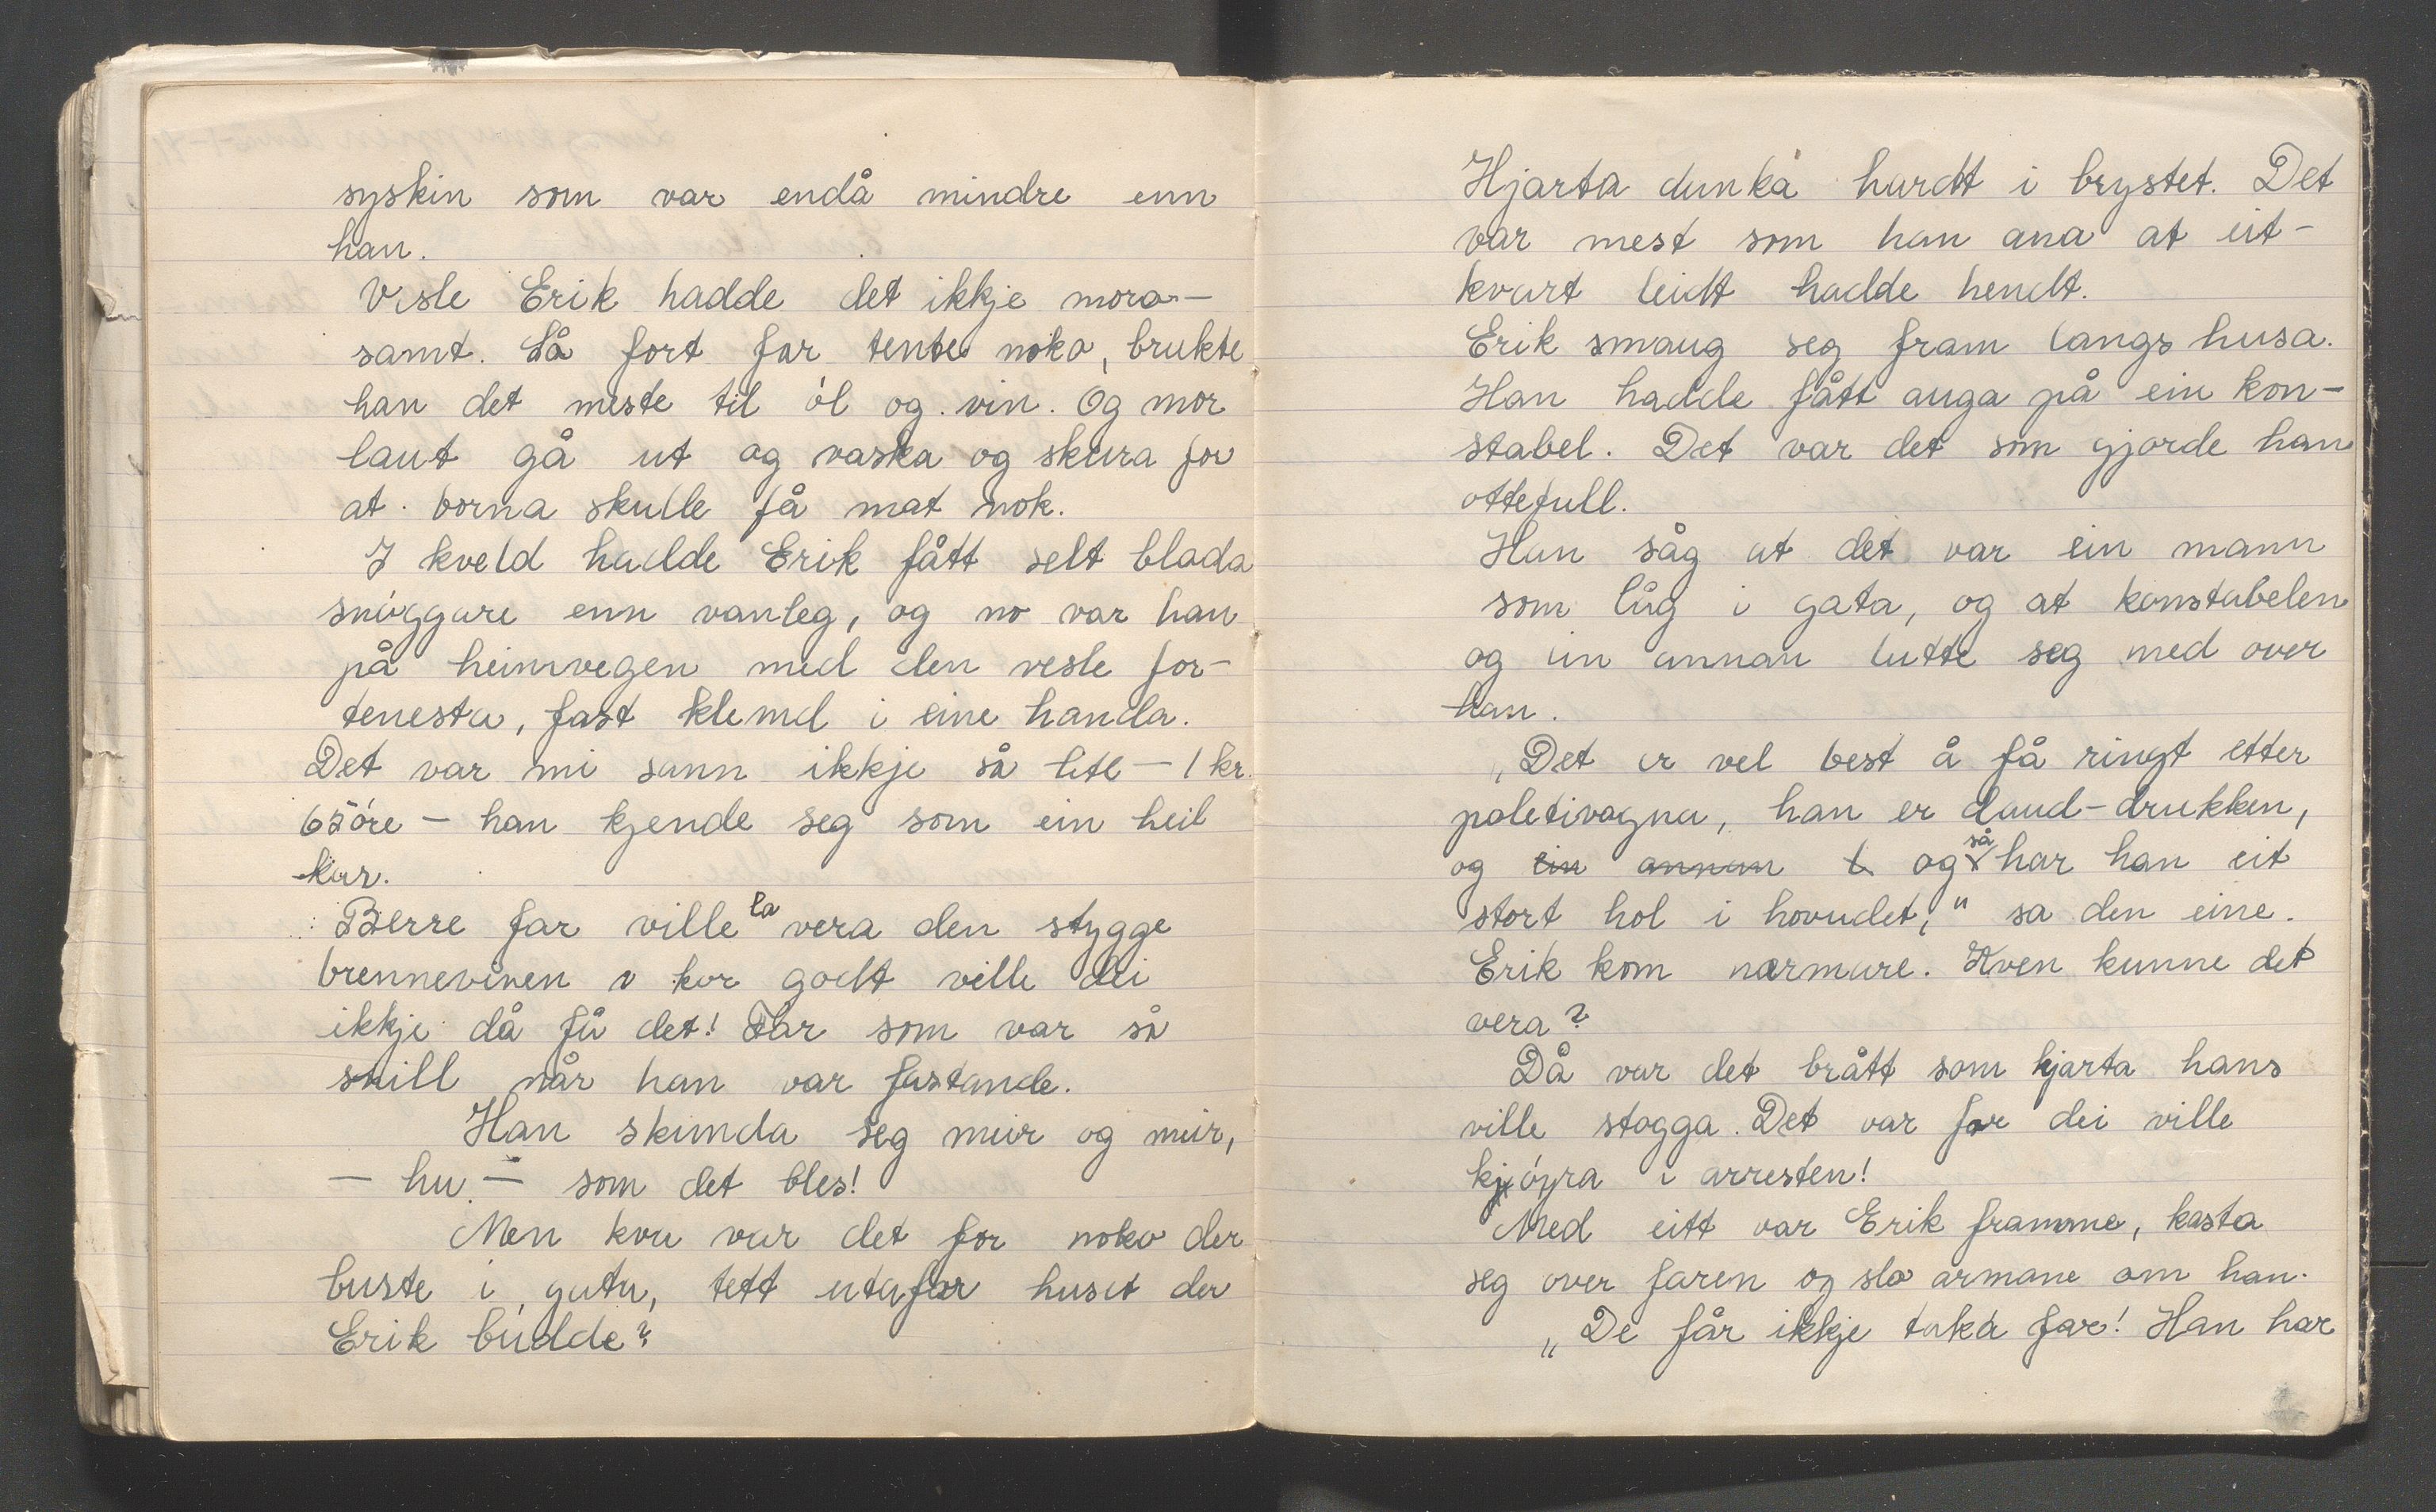 syskin som var endå mindre enn
han.
Vesle Erik hadde det ikkje moro-
samt. Så fort far tente noko, brukte
han det meste til øl og vin. Og mor
laut gå ut og vaska og skura for
at borna skulle få mat nok.
I kveld hadde Erik fått selt blada
snøggare enn vanleg, og no var han
på heimvegen med den vesle for-
tenesta, fast klemd i eine handa.
Det var mi sann ikkje så lite - 1 kr.
65 øre - han kjende seg som ein heil
kar.
Berre far ville la vera den stygge
brennevinen kor godt ville dei
ikkje då få det! Far som var så
snill når han var fastande.
Han skunda seg meir og meir,
- hu - som det bles!
Men kva var det for noko der
burte i gata, tett utafor huset der
Erik budde?
Hjarta dunka hardt i brystet. Det
var mest som han ana at eit-
kvart leidt hadde hendt.
Erik smaug seg fram langs husa.
Han hadde fått auga på ein kon-
stabel. Det var det som gjorde han
ottefull.
Han såg at det var ein mann
som låg i gata, og at konstabelen
og ein annan lutte seg med over
han.
„Det er vel best å få ringt etter
poletivogna, han er daud-drukken,
og ein annan l og så har han eit
stort hol i hovudet," sa den eine.
Erik kom nærmare. Kven kunne det
vera?
Då var det brått som hjarta hans
ville stogga. Det var far dei ville
kjøyra i arresten!
Med eitt var Erik framme, kasta
seg over faren og slo armane om han.
„De får ikkje taka far! Han har